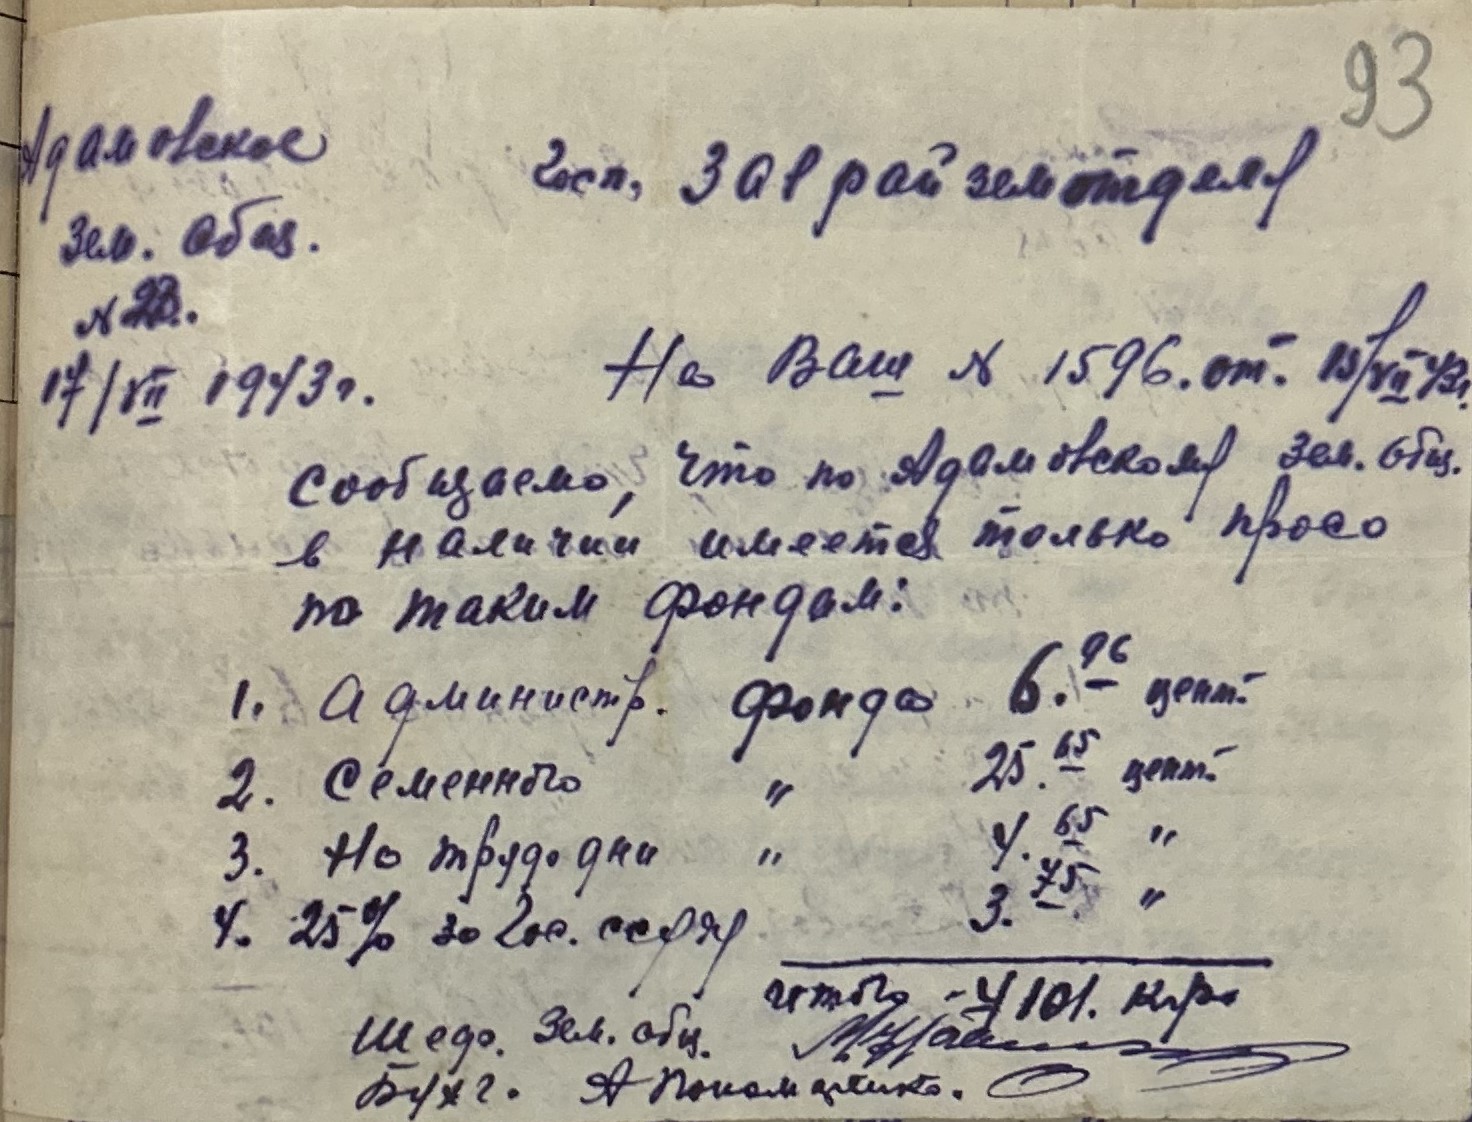 93
Адамовское
Зем. общ.
N 23.
17/VII 1943 г.
Госп. Заврайземотделу
На Ваш N 1596. от. 15/VII 43г.
сообщаемо, что по Адамовскому Зем. общ.
в наличии имеется только просо
по таким фондам:
1. Администр. Фонда 6.96 цент.
2. Семенного " 25.65 цент.
3. На трудодни " 4.65 "
4. 25% за Гос. ссуду 3.75 "
итого - 4101. кгр
Шеф. Зем. общ.
Бухг. А Пономаренко.